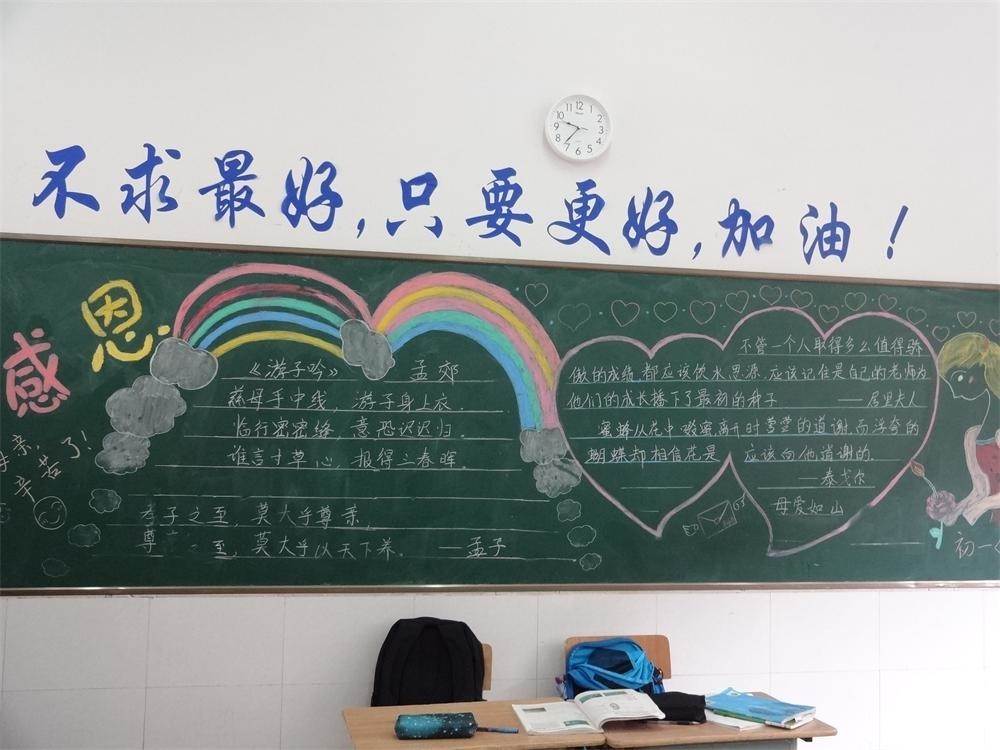 不求最好,只要更好,加油!
感恩
辛苦了!
《游子吟》 孟郊
慈母手中线,游子身上衣.
临行密密缝,意恐迟迟归.
谁言寸草心,报得三春晖.
孝子之至,莫大乎尊亲,
尊 至,莫大乎以天下养. —孟子
不管一个人取得多么值得骄
傲的成绩,都应该饮水思源,应该记住是自己的老师为
他们的成长播下了最初的种子 ——居里夫人
蜜蜂从花中啜蜜,离开时营营的道谢.而浮夸的
蝴蝶却相信花是 应该向他道谢的.
——泰戈尔
母爱如山
初一
12 1 2 3 4 5 6 7 8 9 10 11